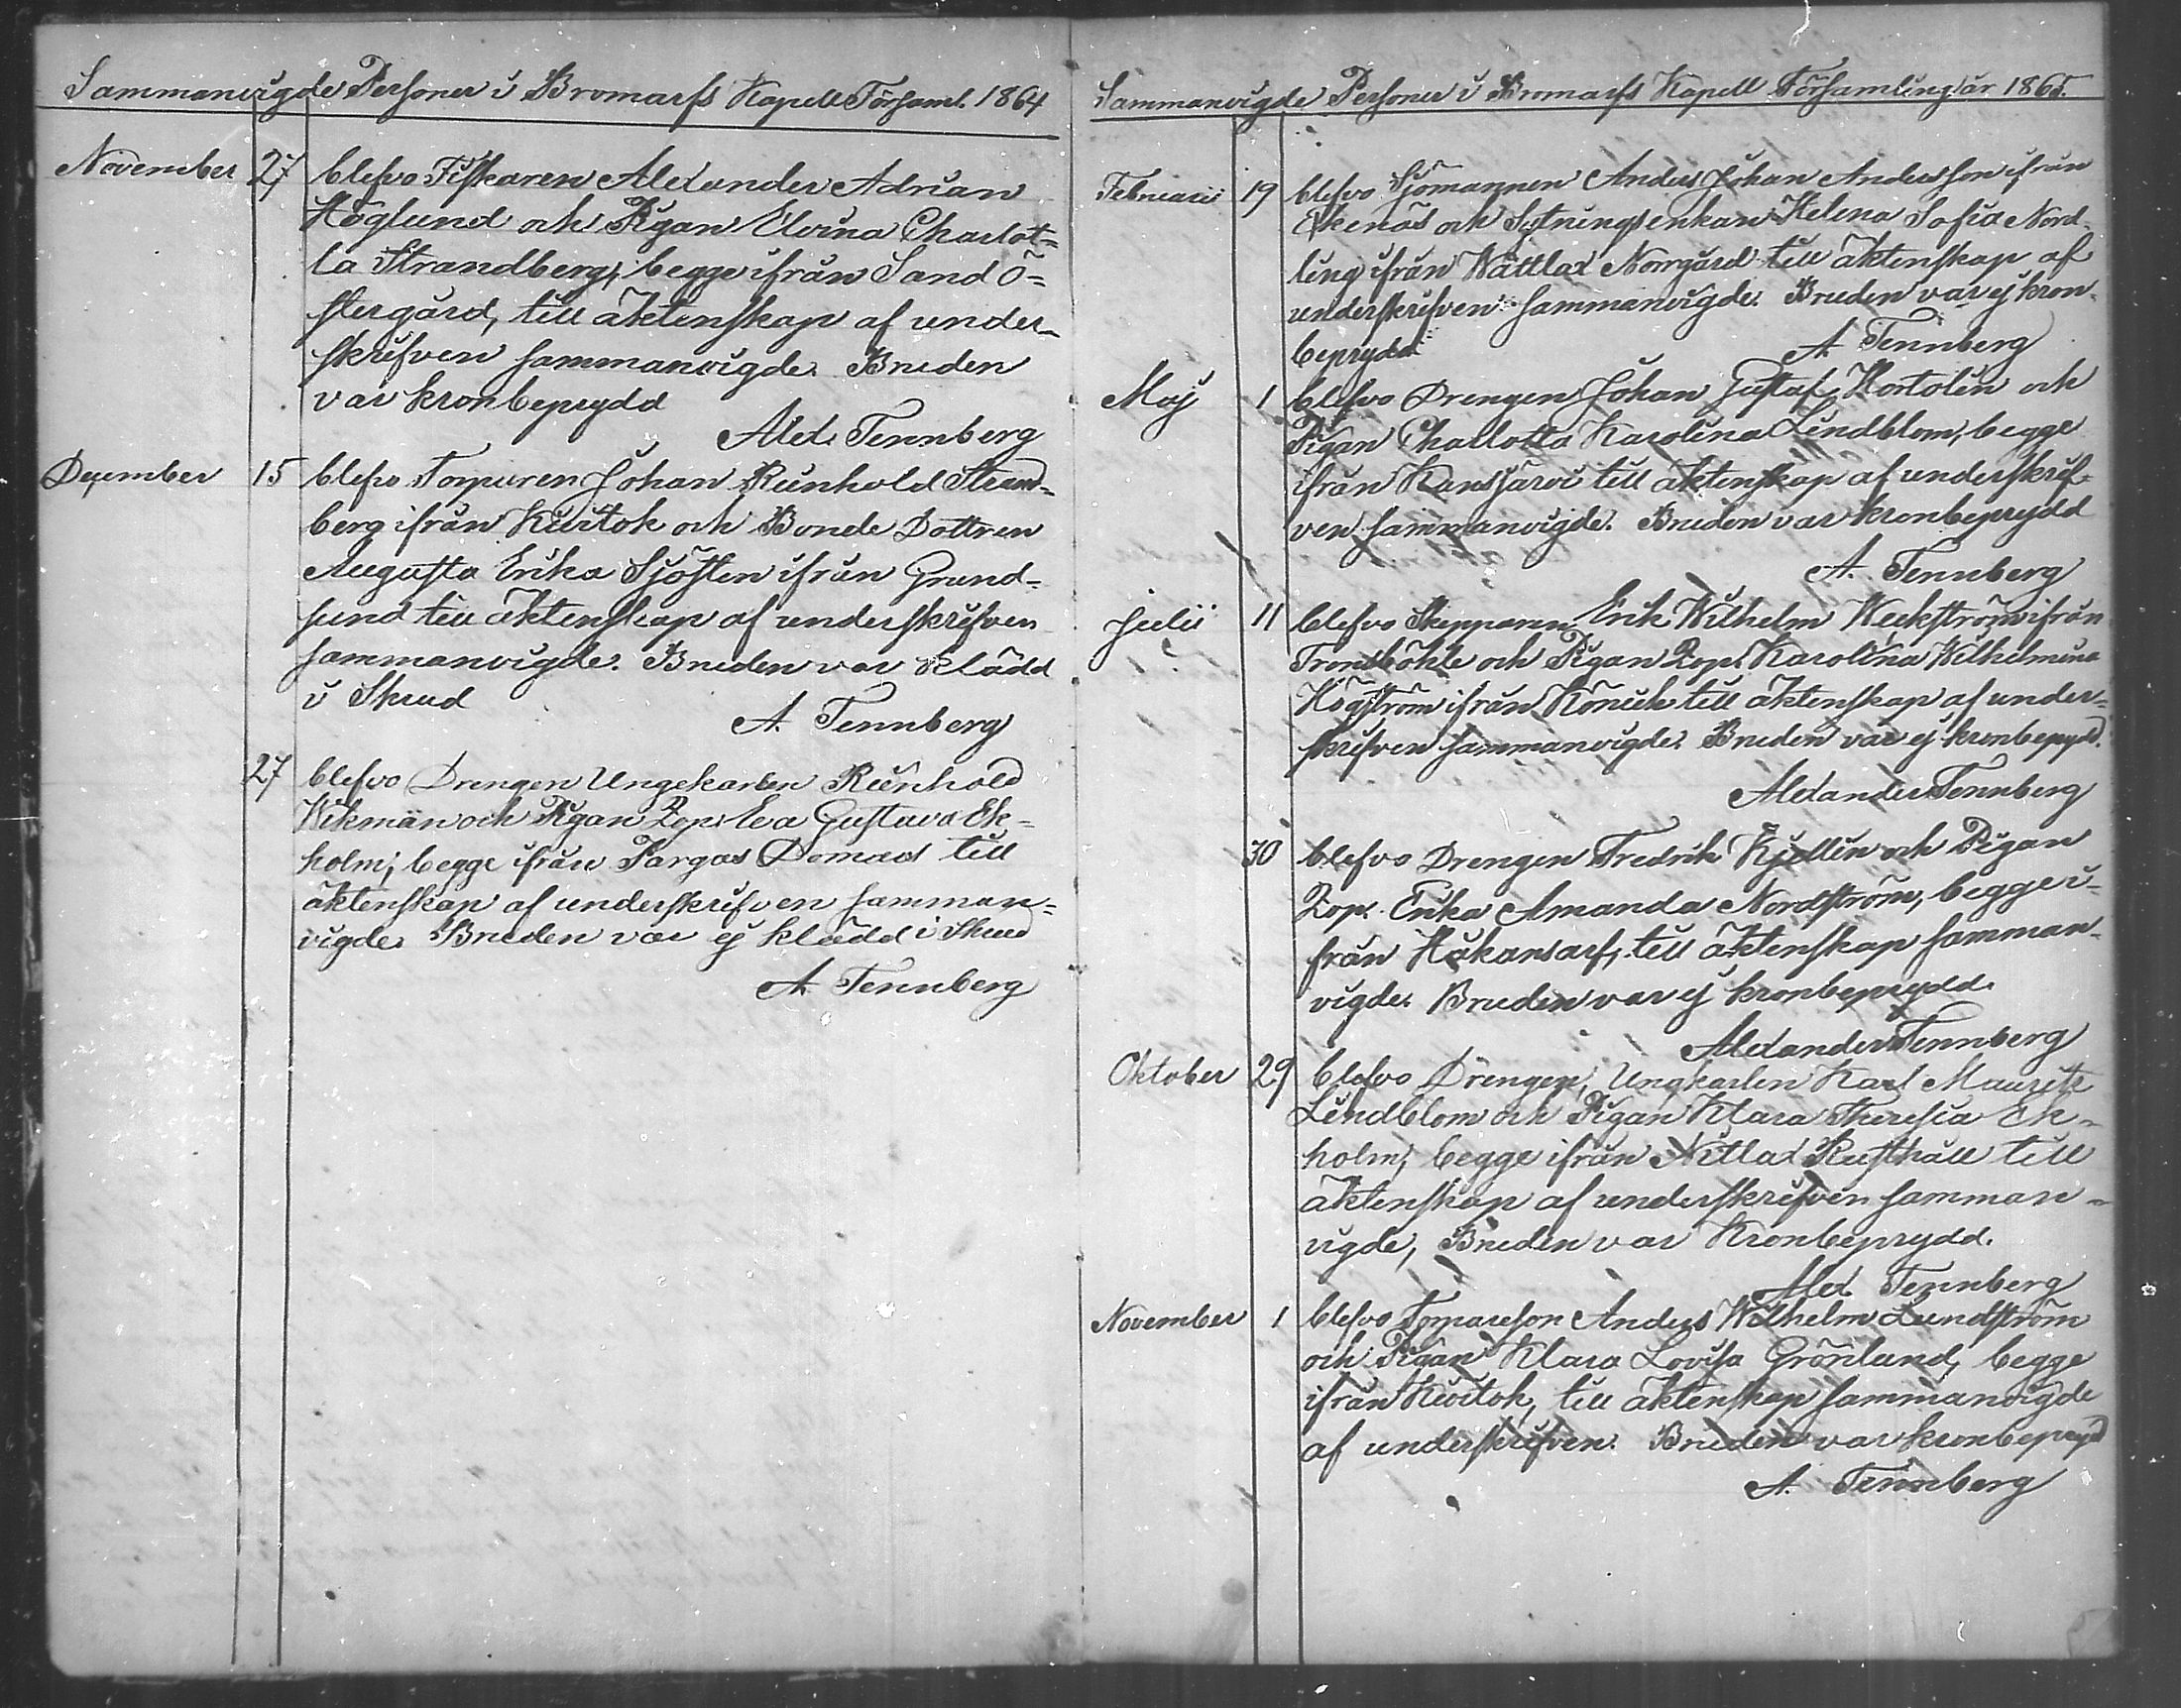 Sammanvigde Personer i Bromarfs Kapell Församl. 1864
November 27 blefvo Fiskaren Alexander Adrian
Höglund och Pigan Elvina Charlot=
ta Strandberg, begge ifrån Sand Ö=
stergård, till äktenskap af under-
skrifven sammanvigde. Bruden
var kronbeprydd
Alex. Tennberg
December 15 blefvo Torparen Johan Reinhold Strand-
berg ifrån Kuitok och Bonde Dottren
Augusta Erika Sjösten ifrån Grund-
sund till äktenskap af underskrifven
sammanvigde. Bruden var klädd
i Skrud
A. Tennberg
27 blefvo Drengen Ungekarlen Reinhold
Wikman och Pigan Rops Eva Gustava Ek-
holm, begge ifrån Pargas till
äktenskap af underskrifven samman=
vigde. Bruden var ej klädd i Skrud
A. Tennberg
Sammanvigde Personer i Bromarfs Kapell Församling år 1865.
Februarii 19 blefvo Sjömannen Anders Johan Andersson ifrån
Ekenäs och enkan Helena Sofia Nord-
ling ifrån Wättlax Norrgård till äktenskap af
underskrifven sammanvigde. Bruden var ej kron-
beprydd
A Tennberg
Maj 1 blefvo Drengen Johan Gustaf Hortolin och
Pigan Charlotta Karolina Lindblom, begge
ifrån Kansjärvi till äktenskap af underskrif-
ven sammanvigde. Bruden var kronbeprydd
A. Tennberg
Julii 11 blefvo Skepparen Erik Wilhelm Weckström ifrån
Tronsböhle och Pigan Rops. Karolina Wilhelmina
Högström ifrån till äktenskap af under-
skrifven sammanvigde. Bruden var ej kronbepydd.
Alexander Tennberg
30 blefvo Drengen Fredrik Kjellin och Pigan
Rops. Erika Amanda Nordström, begge i-
från Håkansarf, till äktenskap samman-
vigde. Bruden var ej kronbeprydd.
Alexander Tennberg
Oktober 29 blefvo Drengen, Ungkarlen Karl Mauritz
Lindblom och Pigan Klara Theresia Ek-
holm, begge ifrån Nitlax Rusthåll till
äktenskap af underskrifven samman-
vigde, Bruden var Kronbeprydd.
Alex Tennberg
November 1 blefvo Torpareson Anders Wilhelm Lundström
och Pigan Klara Lovisa Grönlund, begge
ifrån Kuitok, till äktenskap sammanvigde
af underskrifven. Bruden var kronbeprydd
A. Tennberg